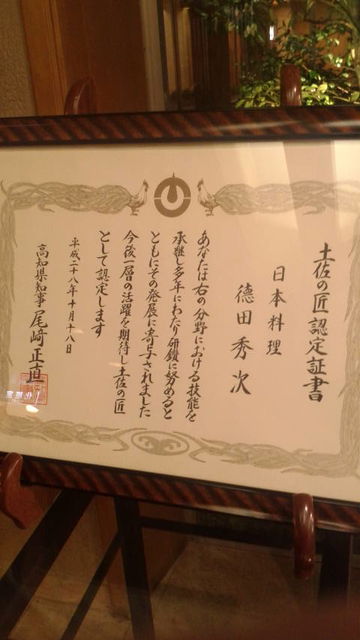 土佐の匠認定証書
日本料理
德田秀次
あなたは右の分野における技能を
承継し多年にわたり研鑽に努めると
ともにその発展に寄与されました
今後一層の活躍を期待し土佐の匠
として認定します
平成二十八年十月十八日
高知県知事 尾﨑正直